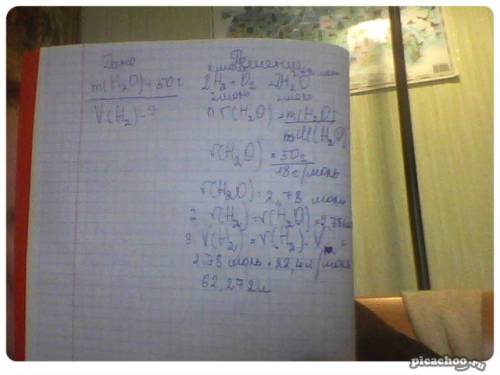 Дано
m(H₂O) = 50 г
V(H₂) - ?
Решение
2H₂ + O₂ = 2H₂O
2моль 2моль
1) ν(H₂O) = m(H₂O)
M(H₂O)
ν(H₂O) = 50г
18 г/моль
ν(H₂O) = 2,78 моль
2 ν(H₂) = ν(H₂O) = 2,78
3 V(H₂) = ν(H₂) · V =
2,78 моль · 22,4 л/моль
62,272л
picachoo.ru